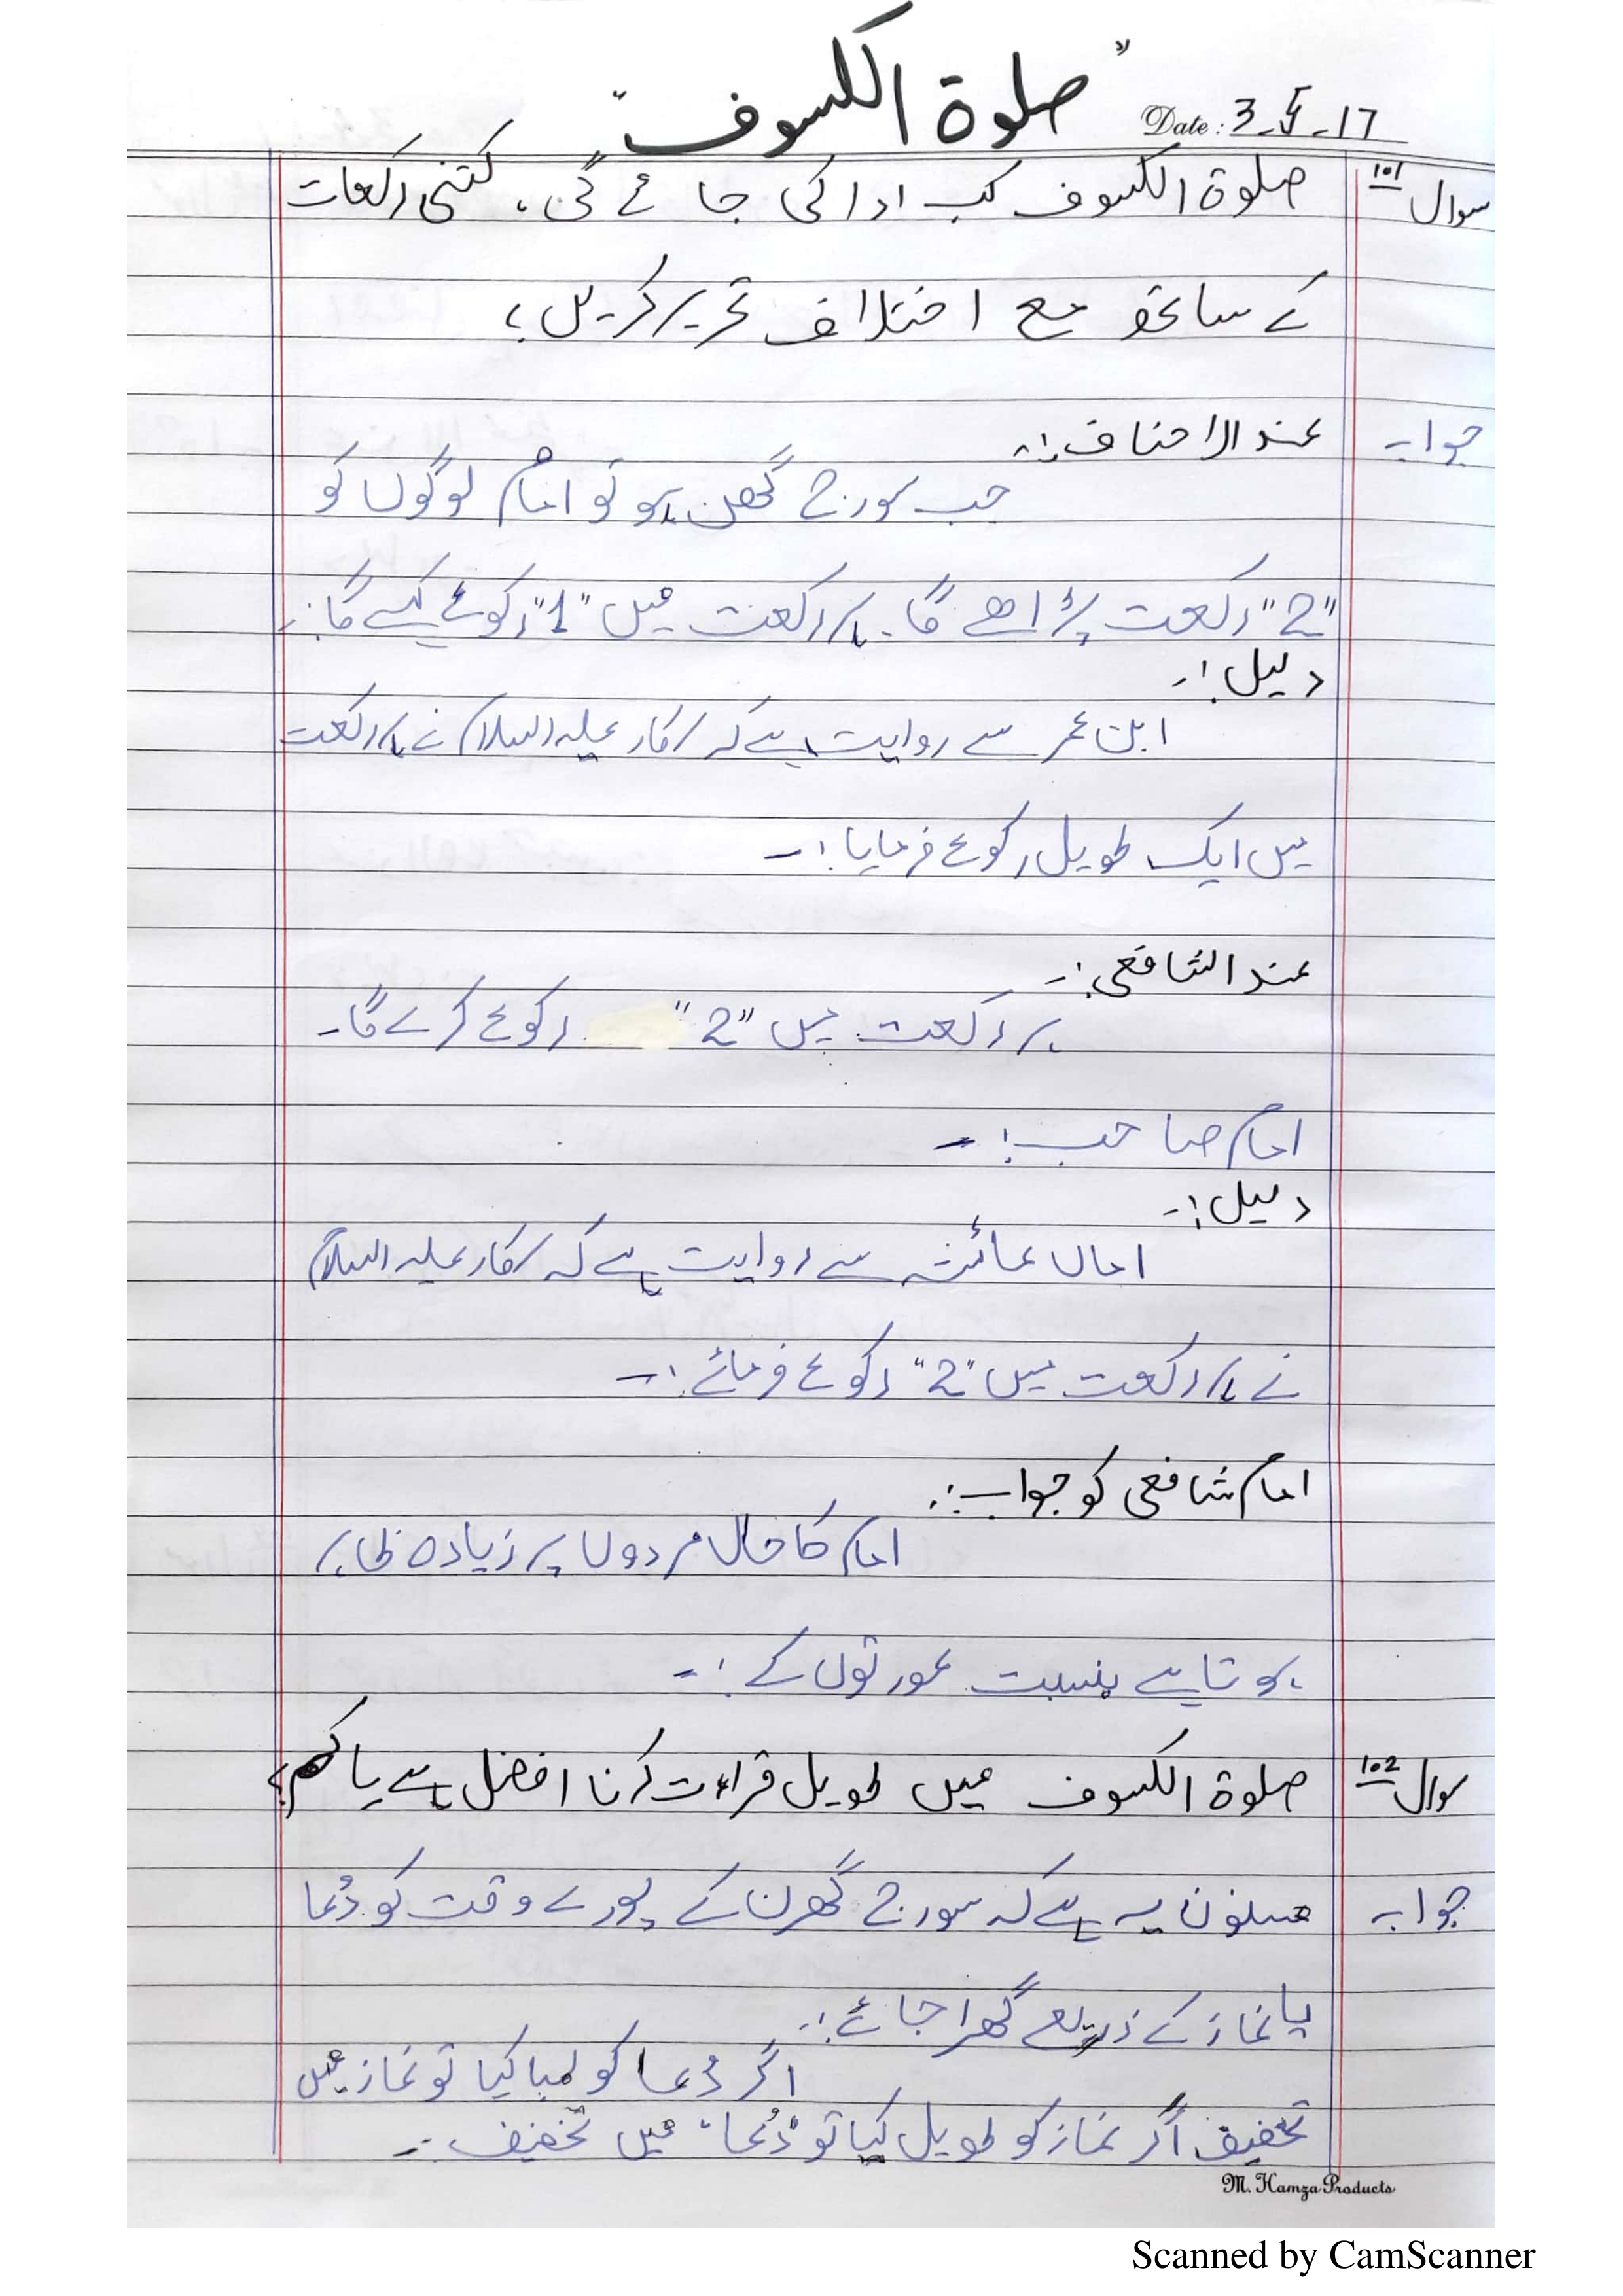 "صلوۃ الکسوف"
Date: 3-5-17
سوال 101 صلوۃ الکسوف کب ادا کی جائے گی، کتنی رکعات
کے ساتھ مع اختلاف تحریر کریں؟
جواب عند الاحناف:-
جب سورج گھن ہو تو امام لوگوں کو
"2" رکعت پڑاھے گا۔ ہر رکعت میں "1" رکوع کرے گا:-
دلیل:-
ابن عمر سے روایت ہے کہ سرکار علیہ السلام نے ہر رکعت
میں ایک طویل رکوع فرمایا:-
عند الشافعی:-
ہر رکعت میں "2" رکوع کرے گا۔
امام صاحب:-
دلیل:-
اماں عائشہ سے روایت ہے کہ سرکار علیہ السلام
نے ہر رکعت میں "2" رکوع فرمائے:-
امام شافعی کو جواب:-
امام کا حال مردوں پر زیادہ ظاہر
ہوتا ہے بنسبت عورتوں کے:-
سوال 102 صلوۃ الکسوف میں طویل قراءت کرنا افضل ہے یا کم؟
جواب مسنون یہ ہے کہ سورج گھرن کے پورے وقت کو دُعا
یا نماز کے ذریعے گھیرا جائے:-
اگر دُعا کو لمبا کیا تو نماز میں
تخفیف اگر نماز کو طویل کیا تو "دُعا" میں تخفیف:-
M. Hamza Products
Scanned by CamScanner